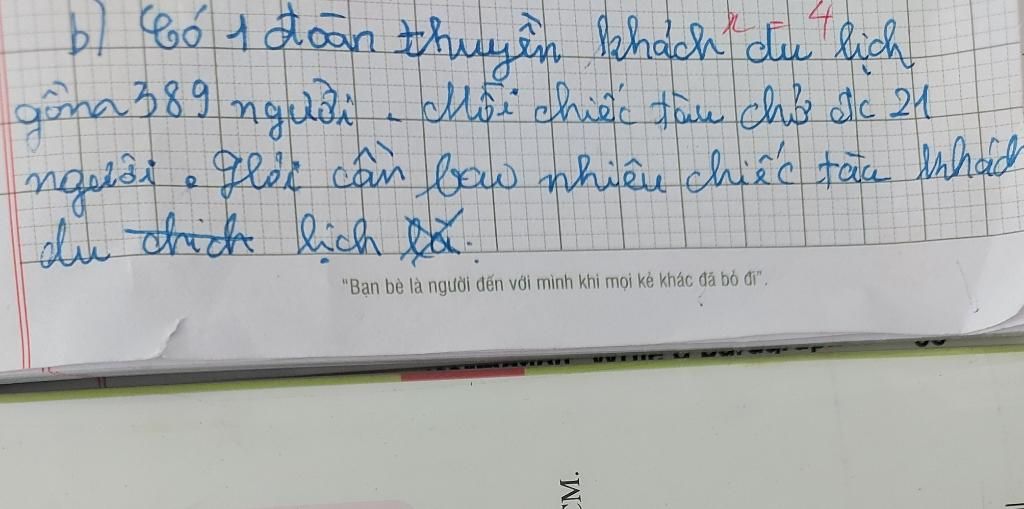 b) Có 1 đoàn thuyền khách du lịch
x = 4
gồm 389 người. Mỗi chiếc tàu chở đc 21
người. Hỏi cần bao nhiêu chiếc tàu khách
du lịch
"Bạn bè là người đến với mình khi mọi kẻ khác đã bỏ đi".
CM.